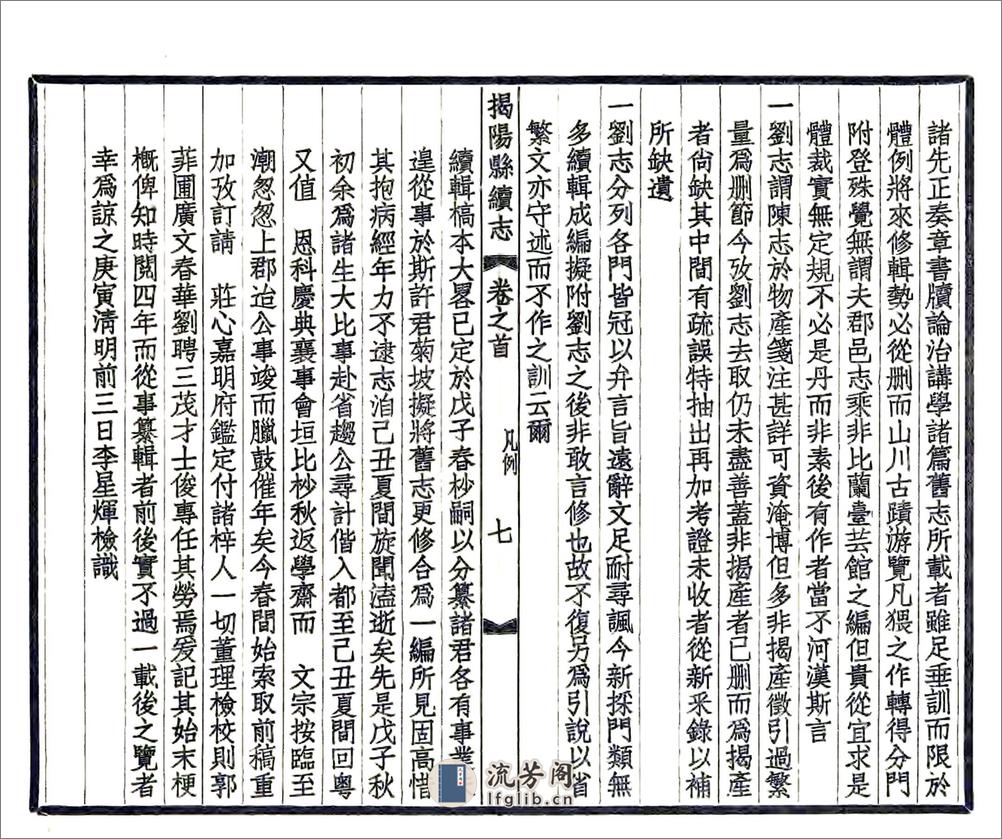 諸先正奏章書牘論治講學諸篇舊志所載者雖足垂訓而限於
體例將來修輯勢必從刪而山川古蹟游覽凡猥之作轉得分門
附登殊覺無謂夫郡邑志乘非比蘭臺芸館之編但貴從宜求是
體裁實無定規不必是丹而非素後有作者當不河漢斯言
一劉志謂陳志於物產箋注甚詳可資淹博但多非揭產徵引過繁
量爲刪節今攷劉志去取仍未盡善蓋非揭產者已刪而爲揭產
者尙缺其中間有疏誤特抽出再加考證未收者從新釆錄以補
所缺遺
一劉志分列各門皆冠以弁言旨遠辭文足耐尋諷今新採門類無
多續輯成編擬附劉志之後非敢言修也故不復另爲引說以省
繁文亦守述而不作之訓云爾
揭陽縣續志 卷之首 凡例 七
續輯槁本大畧已定於戊子春杪嗣以分纂諸君各有事業
遑從事於斯許君菊坡擬將舊志更修合爲一編所見固高惜
其抱病經年力不逮志洎己丑夏間旋聞溘逝矣先是戊子秋
初余爲諸生大比事赴省趨公尋計偕入都至己丑夏間回粵
又值 恩科慶典襄事會垣比杪秋返學齋而 文宗按臨至
潮忽忽上郡迨公事竣而臘鼓催年矣今春間始索取前稿重
加攷訂請 莊心嘉明府鑑定付諸梓人一切董理檢校則郭
菲圃廣文春華劉聘三茂才士俊專任其勞焉爰記其始末梗
槪俾知時閱四年而從事纂輯者前後實不過一載後之覽者
幸爲諒之庚寅淸明前三日李星煇檢識
流芳阁
lfglib.cn